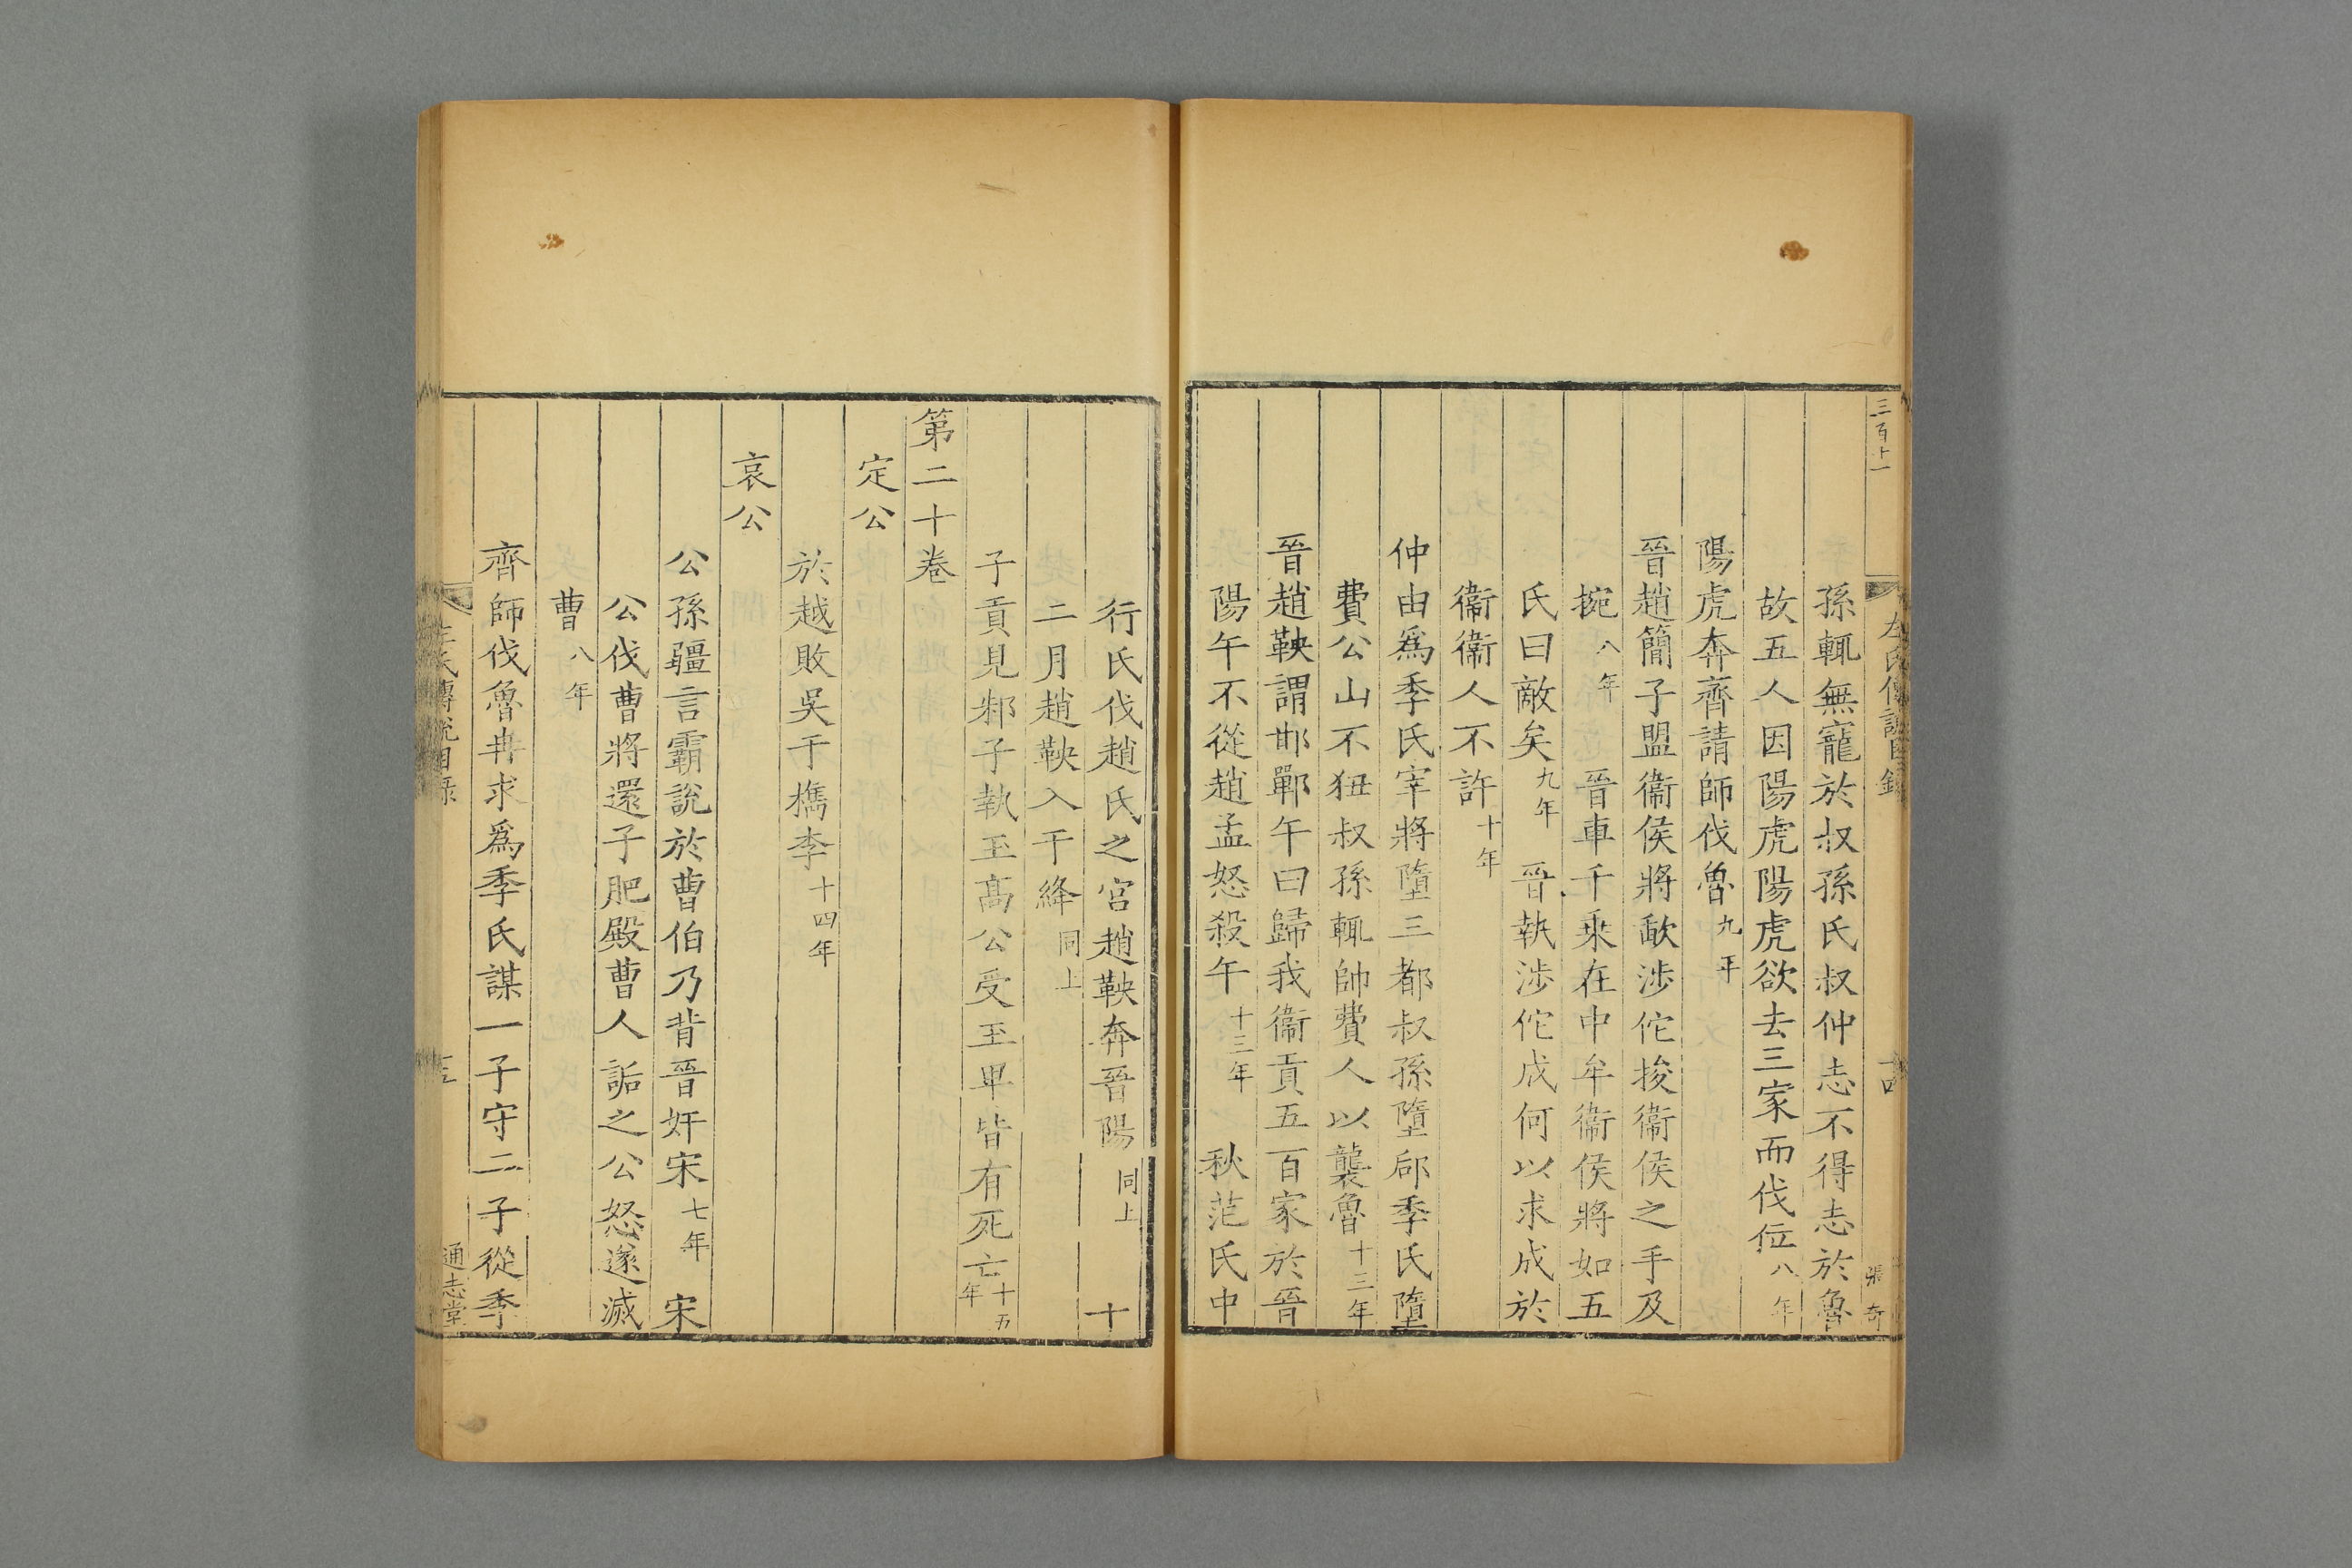 三百十一
張奇
孫輒無寵於叔孫氏叔仲志不得志於魯
故五人因陽虎陽虎欲去三家而伐位八年
陽虎奔齊請師伐魯九年
晉趙簡子盟衞侯將歃涉佗捘衞侯之手及
捥八年 晉車千乘在中牟衞侯將如五
氏曰敵矣九年 晉執涉佗成何以求成於
衞衞人不許十年
仲由爲季氏宰將墮三都叔孫墮郈季氏墮
費公山不狃叔孫輒帥費人以襲魯十三年
晉趙鞅謂邯鄲午曰歸我衞貢五百家於晉
陽午不從趙孟怒殺午十三年 秋范氏中
行氏伐趙氏之宮趙鞅奔晉陽同上 十
二月趙鞅入于絳同上
子貢見邾子執玉高公受玉卑皆有死亡十五年
第二十卷
定公
於越敗吳于檇李十四年
哀公
公孫疆言霸說於曹伯乃背晉奸宋七年 宋
公伐曹將還子肥殿曹人詬之公怒遂滅
曹八年
齊師伐魯冉求爲季氏謀一子守二子從季
通志堂